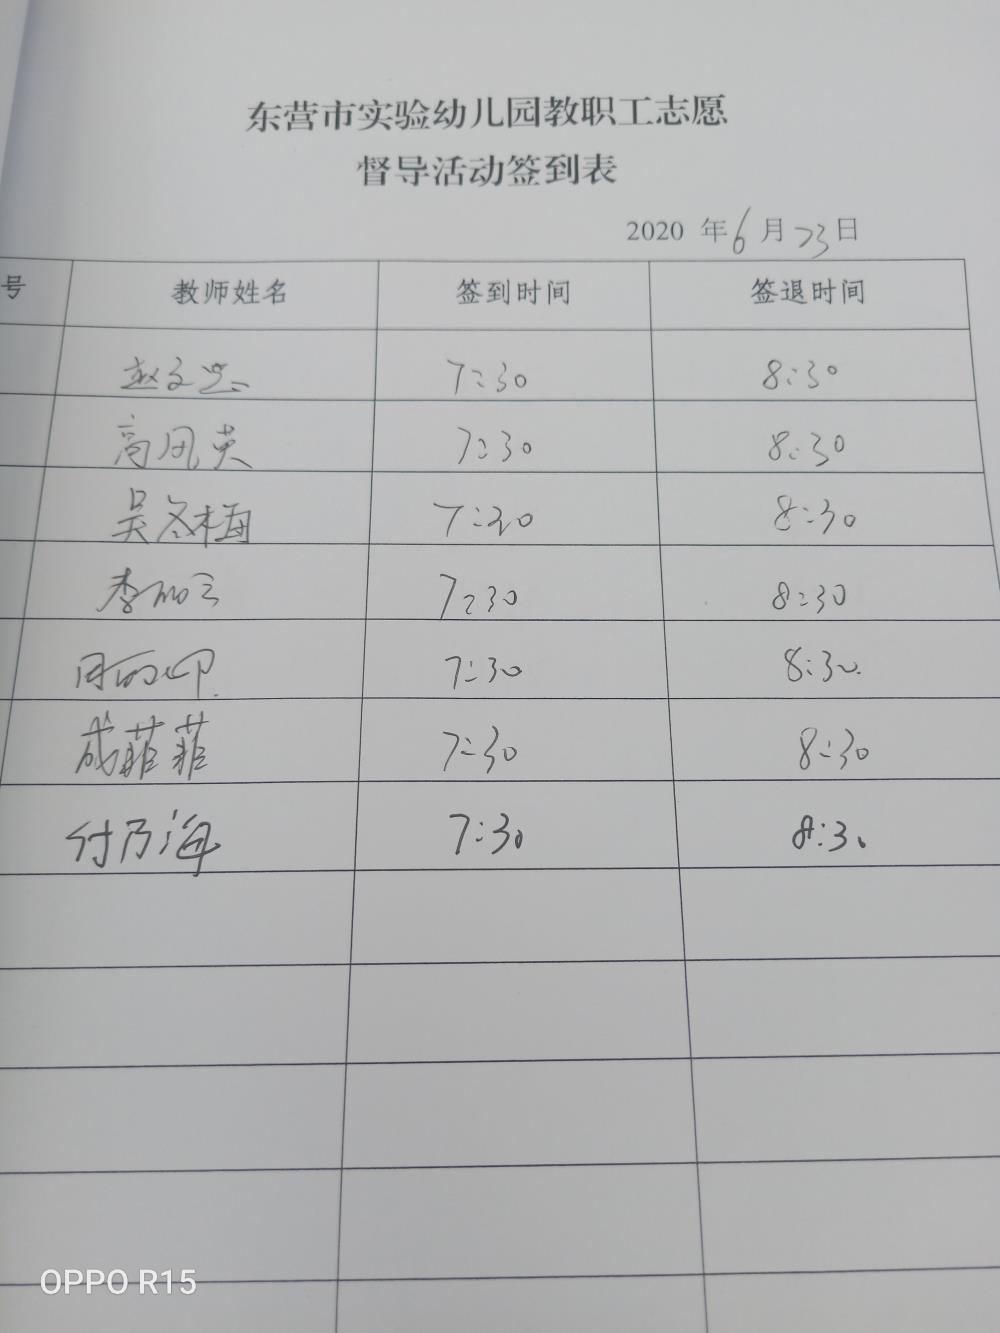 东营市实验幼儿园教职工志愿
督导活动签到表
2020 年 6 月 23 日
号 教师姓名 签到时间 签退时间
赵文 7:30 8:30
高凤英 7:30 8:30
吴冬梅 7:30 8:30
李 7:30 8:30
7:30 8:30
成菲菲 7:30 8:30
付乃海 7:30 8:30
OPPO R15